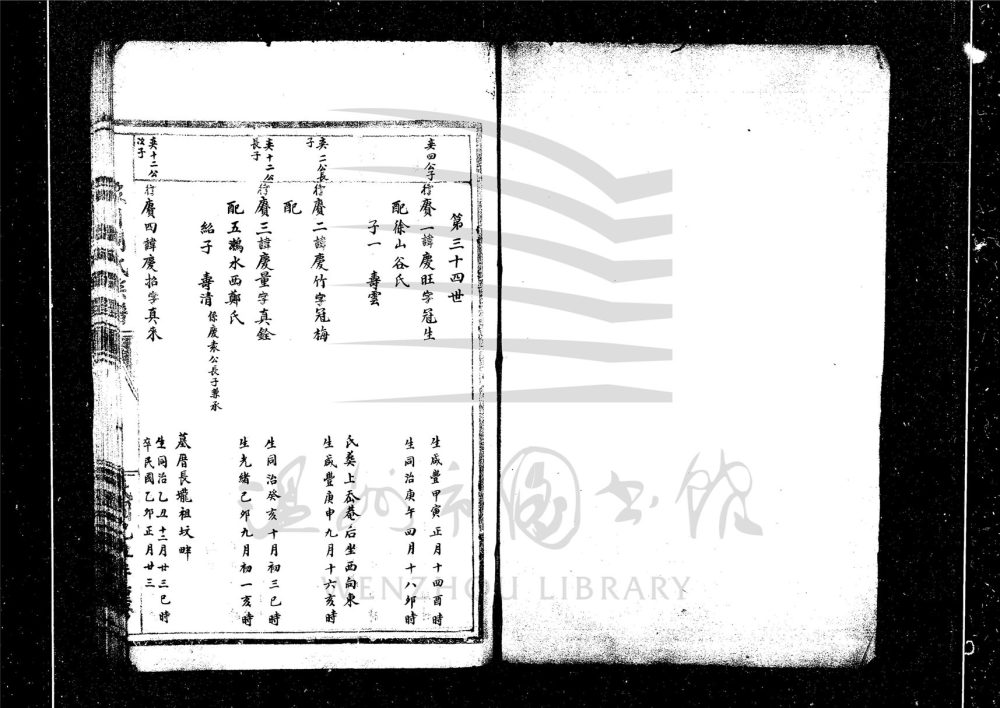 第三十四世
奕四公子
行賡一諱慶旺字冠生
生咸豐甲寅正月十四酉時
配徐山谷氏
生同治庚午四月十八卯時
子一 壽雲
氏葬上岙菴后坐西向東
奕二公長子
行賡二諱慶竹字冠梅
生咸豐庚申九月十六亥時
配
奕十二公長子
行賡三諱慶量字真銓
生同治癸亥十月初三巳時
配五鵝水西鄭氏
生光緒己卯九月初一亥時
紹子 壽清 係慶素公長子兼承
墓厝長壠祖坟畔
奕十二公次子
行賡四諱慶招字真釆
生同治乙丑十二月廿三巳時
卒民國乙卯正月廿三
溫州市圖書館
WENZHOU LIBRARY